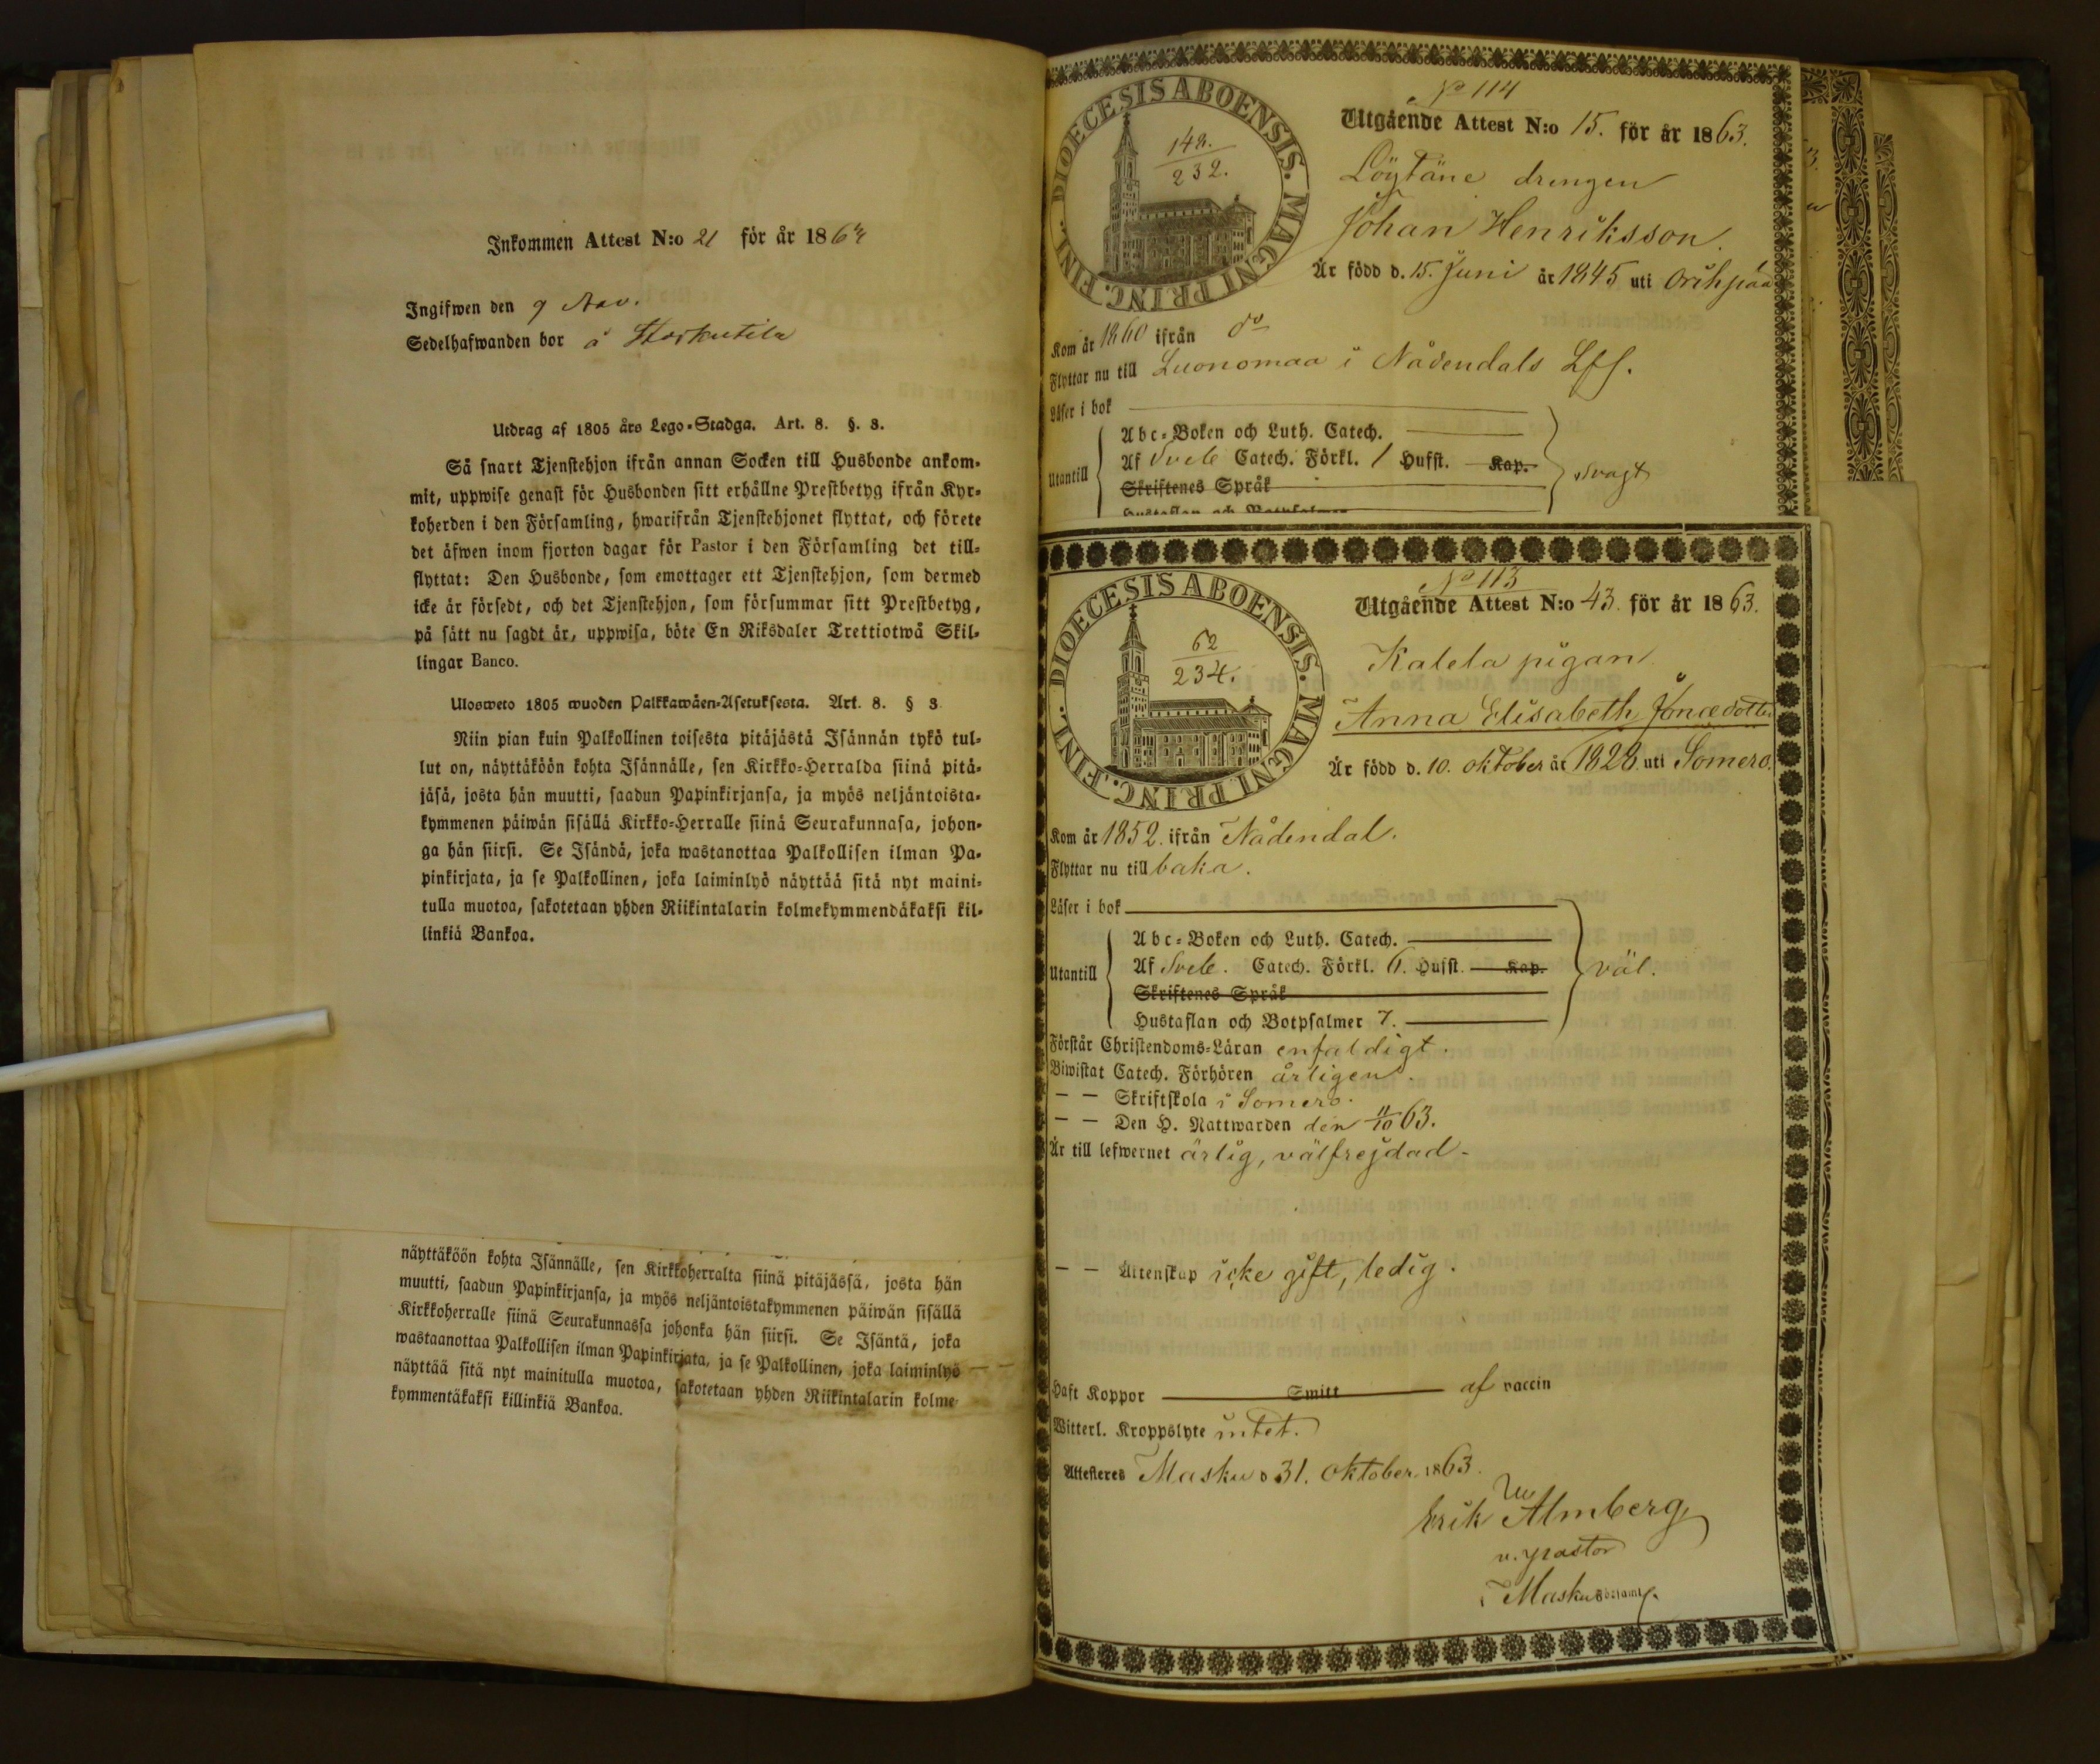 Inkommen Attest N:o 21 för år 186
Ingifwen den 9 Nov.
Sedelhafwanden bor å
Utdrag af 1805 års Lego-Stadga. Art. 8. §. 3.
Så snart Tjenstehjon ifrån annan Socken till Husbonde ankom-
mit, uppwise genast för Husbonden sitt erhållne Prestbetyg ifrån Kyr-
koherden i den Församling, hwarifrån Tjenstehjonet flyttat, och förete
det äfwen inom fjorton dagar för Pastor i den Församling det till-
flyttat: Den Husbonde, som emottager ett Tjenstehjon, som dermed
icke är försedt, och det Tjenstehjon, som försummar sitt Prestbetyg,
på sätt nu sagdt är, uppwisa, böte En Riksdaler Trettiotwå Skil-
lingar Banco.
Ulosweto 1805 wuoden Palkkawäen-Asetuksesta. Art. 8. § 3
Niin pian kuin Palkollinen toisesta pitäjästä Isännän tykö tul-
lut on, näyttäköön kohta Isännälle, sen Kirkko-Herralda siinä pitä-
jäsä, josta hän muutti, saadun Papinkirjansa, ja myös neljäntoista-
kymmenen päiwän sisällä Kirkko-Herralle siinä Seurakunnasa, johon-
ga hän siirsi. Se Isändä, joka wastanottaa Palkollisen ilman Pa-
pinkirjata, ja se Palkollinen, joka laiminlyö näyttää sitä nyt maini-
tulla muotoa, sakotetaan yhden Riikintalarin kolmekymmendäkaksi kil-
linkiä Bankoa.
näyttäköön kohta Isännälle, sen Kirkkoherralta siinä pitäjässä, josta hän
muutti, saadun Papinkirjansa, ja myös neljäntoistakymmenen päiwän sisällä
Kirkkoherralle siinä Seurakunnassa johonka hän siirsi. Se Isäntä, joka
wastaanottaa Palkollisen ilman Papinkirjata, ja se Palkollinen, joka laiminlyö
näyttää sitä nyt mainitulla muotoa, sakotetaan yhden Riikintalarin kolme-
kymmentäkaksi killinkiä Bankoa.
DIOECESIS ABOENSIS. MAGNI PRINC. FINL.
148.
232.
No 114
Utgående Attest N:o 15. för år 1863.
Löytäne drengen
Johan Henriksson.
Är född d. 15. Juni år 1845 uti Orihpää
Kom år 1860 ifrån do
Flyttar nu till Luonomaa i Nådendals Lfs.
Läser i bok
Utantill
Abc-Boken och Luth. Catech.
Af Sveb Catech. Förkl. 1 Hufst. Kap.
Skriftenes Språk
Hustaflan och Botpsalmer
svagt
DIOECESIS ABOENSIS. MAGNI PRINC. FINL.
62
234.
No 113
Utgående Attest N:o 43. för år 1863.
Kalela pigan
Anna Elisabeth
Är född d. 10. oktober år 1828 uti Somero.
Kom år 1852. ifrån Nådendal.
Flyttar nu till baka.
Läser i bok
Utantill
Abc-Boken och Luth. Catech.
Af Sveb. Catech. Förkl. 6. Hufst. Kap.
Skriftenes Språk
Hustaflan och Botpsalmer 7.
väl.
Förstår Christendoms-Läran enfaldigt.
Biwistat Catech. Förhören årligen.
— — Skriftskola i Somero.
— — Den H. Nattwarden den 11/10 63.
Är till lefwernet ärlig, välfrejdad.
— — Äktenskap icke gift, ledig.
Haft Koppor Smitt af vaccin
Witterl. Kroppslyte intet.
Attesteres Masku d 31. oktober 1863.
Erik Wm Almberg
v. pastor
i Masku Församl.